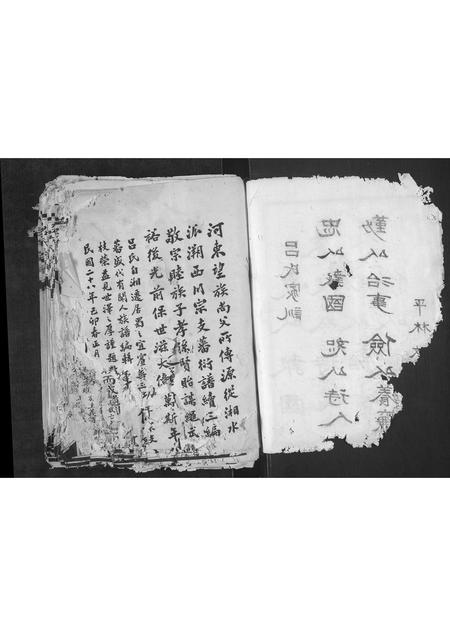 平林
勤以治事 儉以養廉
忠以報國 恕以待人
呂氏家訓
河東望族尚父所傳源從湘水
派溯西川宗支蕃衍譜續三編
敬宗睦族子孝孫賢貽謀繩武
裕後光前保世滋大億萬斯年
呂氏自湘遷居蜀之宜賓
蕃盛代有聞人族譜編輯
枝榮益見世澤之厚謹題
民國二十八年己卯春正月